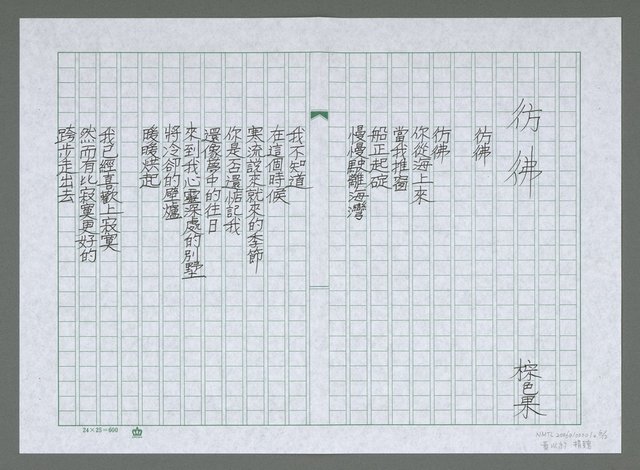 彷彿
棕色果
彷彿
彷彿
你從海上來
當我推窗
船正起碇
慢慢駛離海灣
我不知道
在這個時候
寒流說來就來的季節
你是否還惦記我
還像夢中的往日
來到我心靈深處的別墅
將冷卻的壁爐
暖暖烘起
我已經喜歡上寂寞
然而有比寂寞更好的
跨步走出去
24×25=600